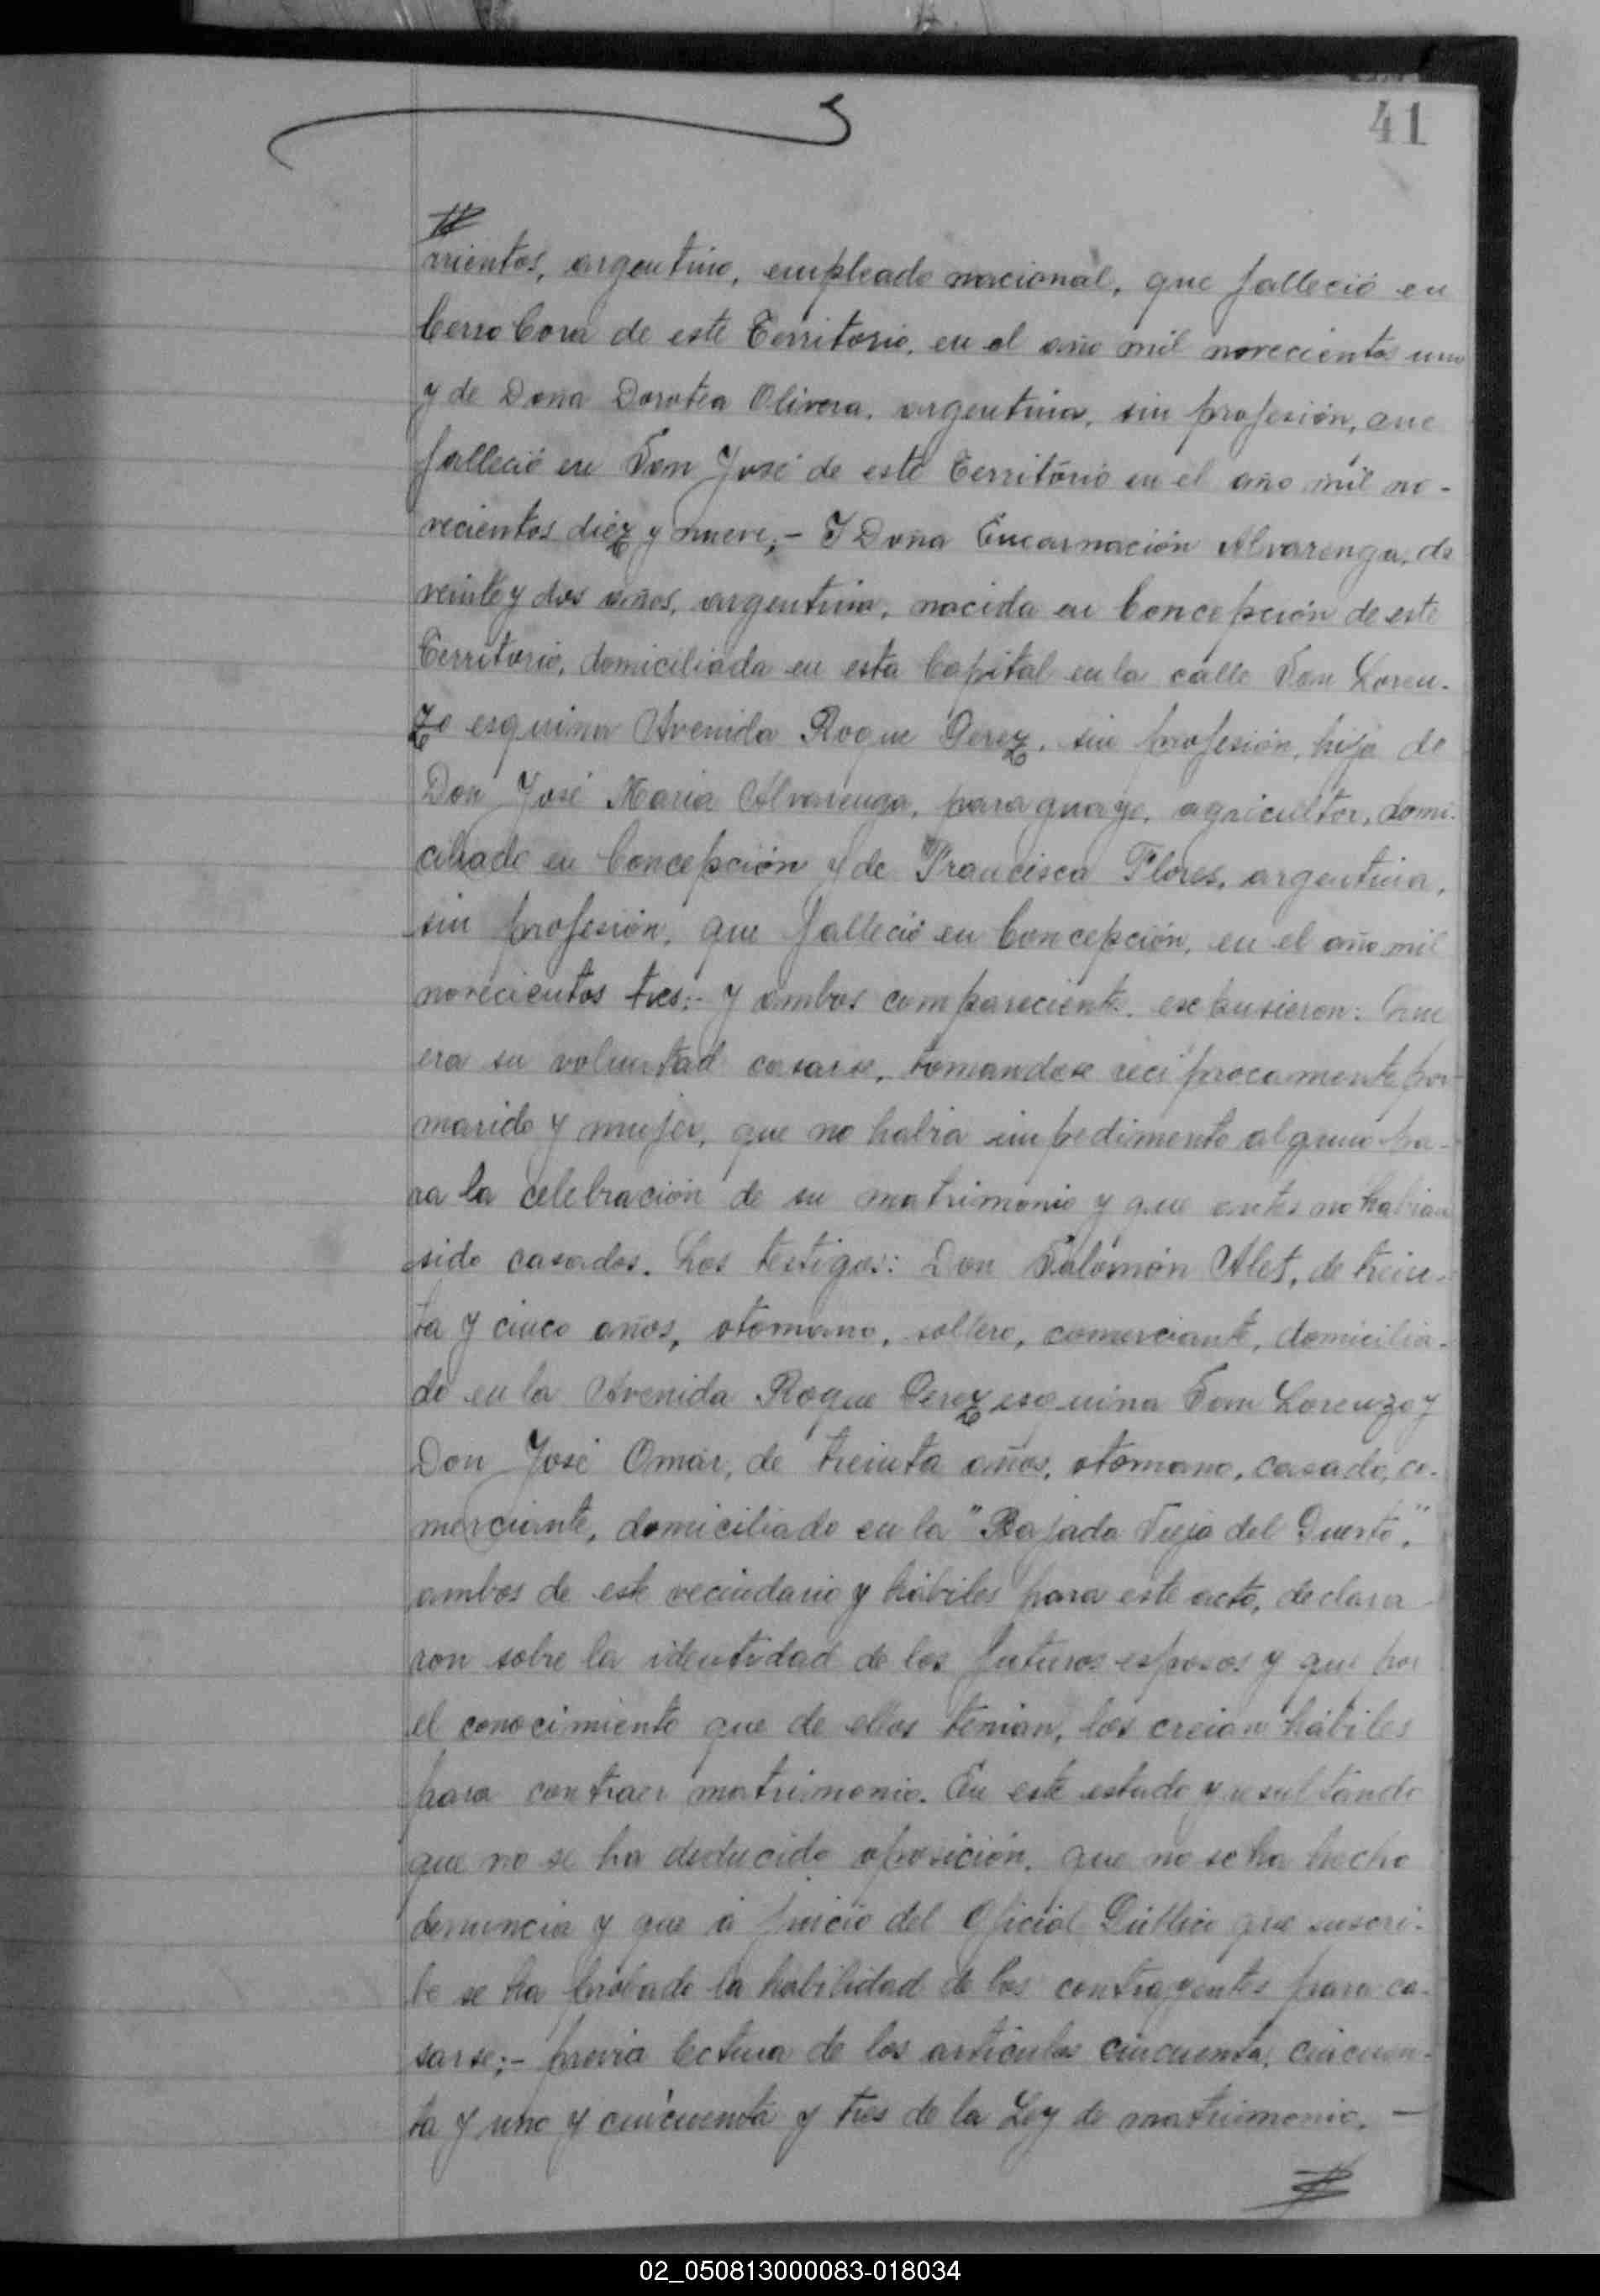 41
rrientos, argentino, empleado nacional, que falleció en
Cerro Cora de este Territorio, en el año mil novecientos uno
y de Doña Dorotea Olivera, argentina, sin profesión, que
falleció en San José de este Territorio en el año mil no-
vecientos diéz y nueve;- Y Doña Encarnación Alvarenga, de
veinte y dos años, argentina, nacida en Concepción de este
Territorio, domiciliada en esta Capital en la calle San Loren-
zo esquina Avenida Roque Perez, sin profesión, hija de
Don José María Alvarenga, paraguayo, agricultor, domi-
ciliado en Concepción y de Francisca Flores, argentina,
sin profesión, que falleció en Concepción, en el año mil
novecientos tres:- y ambos comparecientes expusieron: Que
era su voluntad casarse, tomandose reciprocamente por
marido y mujer, que no habia impedimento alguno pa-
ra la celebración de su matrimonio y que antes no habian
sido casados. Los testigos: Don Salomón Alet, de trein-
ta y cinco años, otomano, soltero, comerciante, domicilia-
do en la Avenida Roque Perez esquina San Lorenzo y
Don José Omar, de treinta años, otomano, casado, co-
merciante, domiciliado en la "Bajada Vieja del Puerto",
ambos de este vecindario y hábiles para este acto, declara
ron sobre la identidad de los futuros esposos y que por
el conocimiento que de ellos tenian, los creian hábiles
para contraer matrimonio. En este estado y resultando
que no se ha deducido oposición, que no se ha hecho
denuncia y que á juicio del Oficial Público que suscri-
be se ha probado la habilidad de los contrayentes para ca-
sarse;- previa lectura de los articulos cincuenta, cincuen-
ta y uno y cincuenta y tres de la Ley de matrimonio. —
02_050813000083-018034